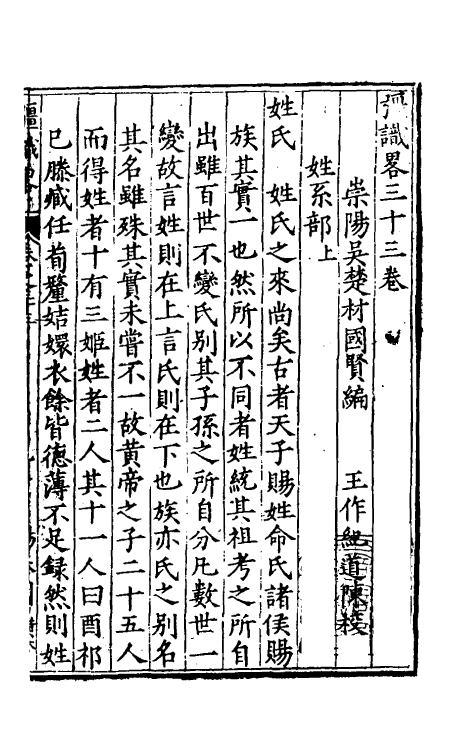 彊識畧三十三卷
崇陽吳楚材國賢編　王作道陳校
姓系部上
姓氏　姓氏之來尚矣古者天子賜姓命氏諸侯賜
族其實一也然所以不同者姓統其祖考之所自
出雖百世不變氏别其子孫之所自分凡數世一
變故言姓則在上言氏則在下也族亦氏之别名
其名雖殊其實未嘗不一故黄帝之子二十五人
而得姓者十有三姬姓者二人其十一人曰酉祁
已滕葴任荀釐姞嬛衣餘皆德薄不足録然則姓